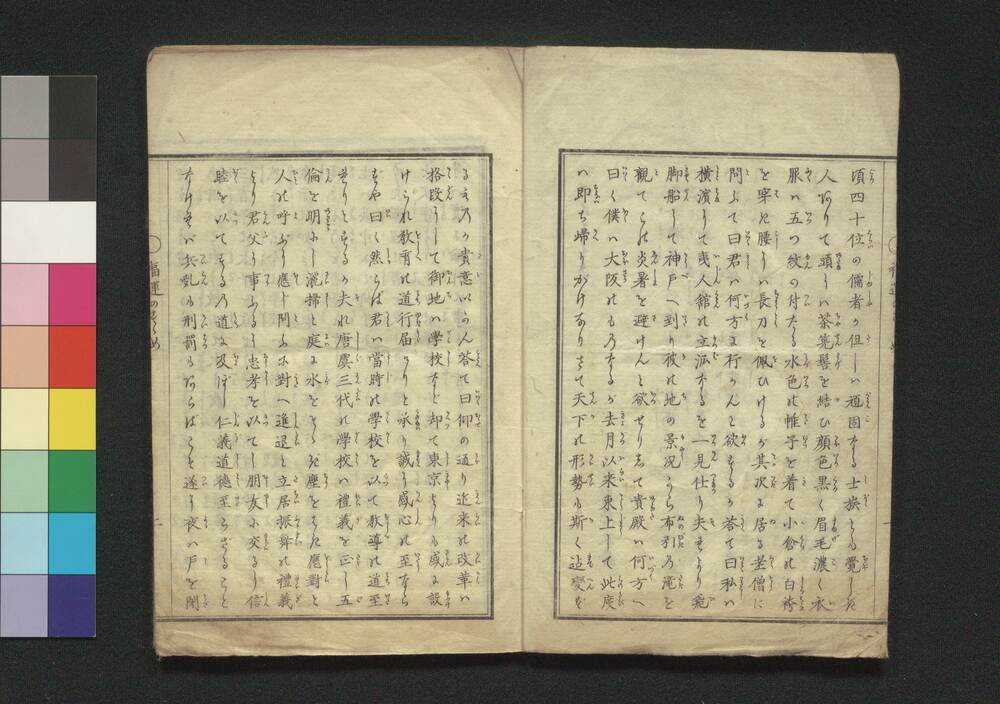 頃四十位の儒者か但しハ頑固なる士族とも覚しき
人ありて頭にハ茶筅髷を結ひ顔色黒く眉毛濃く衣
服ハ五つ紋の付たる水色の帷子を着て小倉の白袴
を穿き腰にハ長刀を佩ひけるが其次に居る老僧に
問ふて曰君ハ何方に行かんと欲するか答て曰私ハ
横濱にて夷人館の立派なるを一見仕り夫より飛
脚船にて神戸へ到り彼の地の景况から布引乃滝を
観て此炎暑を避けんと欲せり而して貴殿ハ何方へ
曰く僕ハ大阪のも乃なるが去月以来東上して此度
ハ即ち帰りがけなりさて天下の形勢も斯く迠変ず
るも乃か貴意いかん答て曰仰の通り近来の改革ハ
格段にして御地ハ学校など却て東京よりも盛に設
けられ教育の道行届かりと承り誠に感心の至なら
ずや曰く然らば君ハ當時の学校を以て教導の道至
れりとするか夫れ唐虞三代の学校ハ禮義を正し五
倫を明にし洒掃と庭に水をそゝぎ塵をはき應對と
人の呼ふに應ヘ問ふに對へ進退と立居振舞の禮義
より君父に事ふるに忠孝を以てし朋友に交るに信
睦を以てする乃道に及ぼし仁義道徳至らざること
なけれバ兵乱の刑罰のあらばこそ遂に夜ハ戸を閉
福運の
二